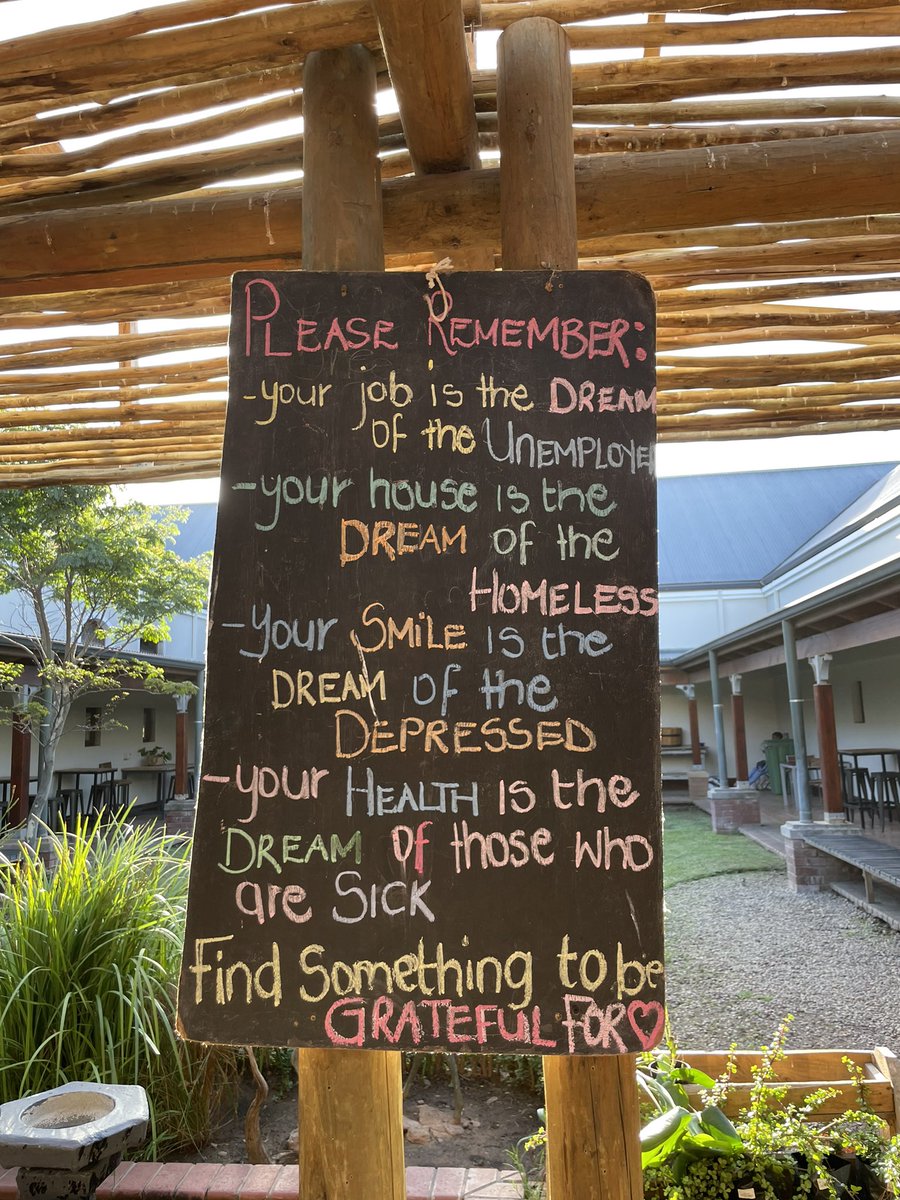 PLEASE REMEMBER:
-your job is the DREAM
of the UNEMPLOYED
-your house is the
DREAM of the
HOMELESS
-Your SMiLE is the
DREAM of the
DEPRESSED
-your HEALTH is the
DREAM of those who
are SICK
Find Something to be
GRATEFUL FOR♡